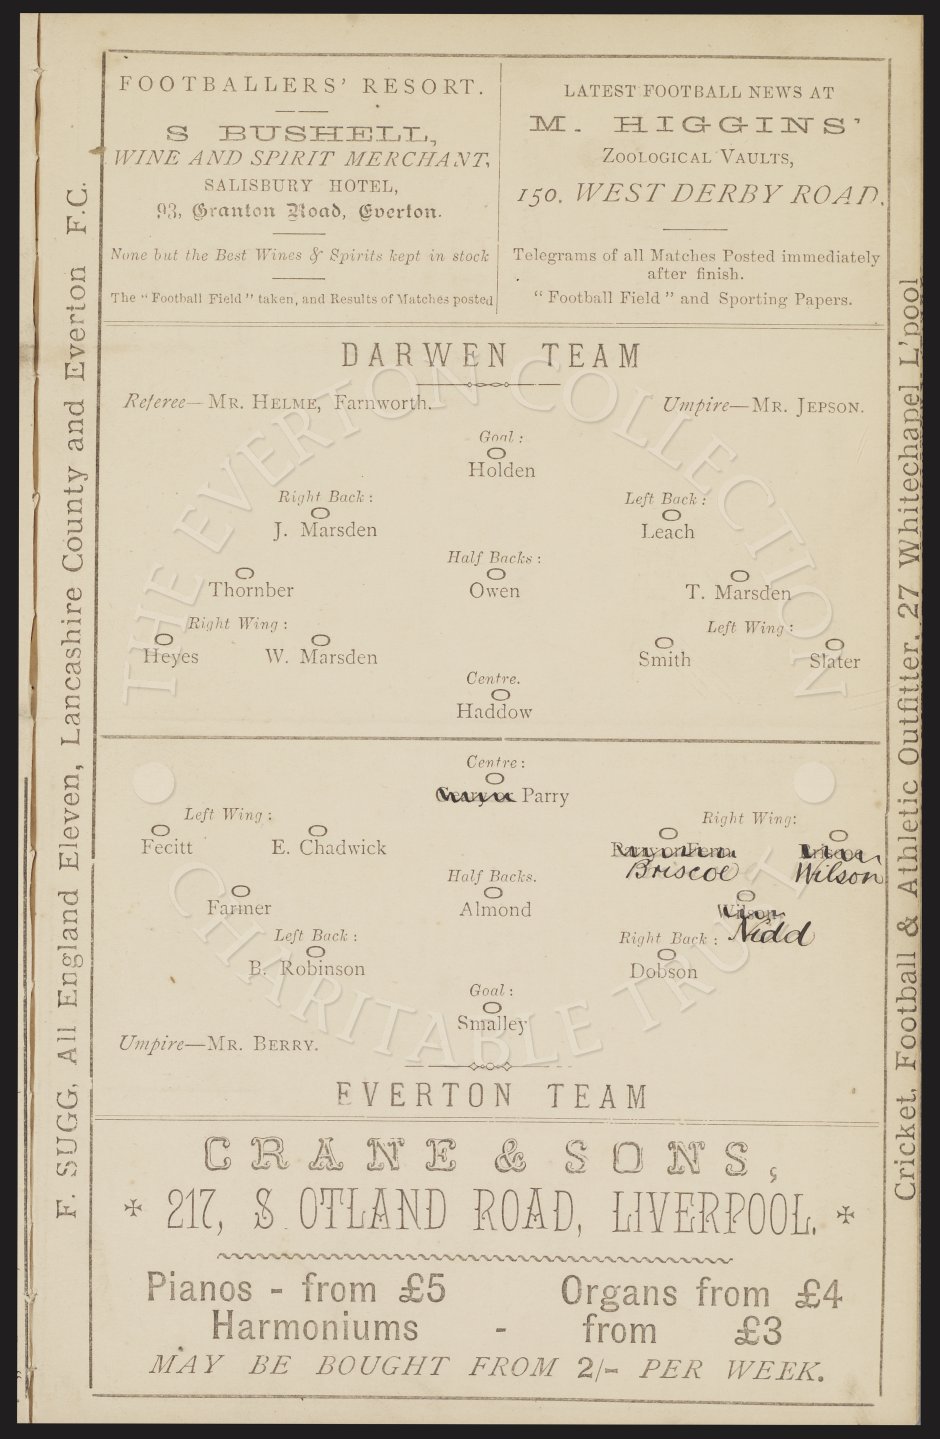 FOOTBALLERS' RESORT.
S BUSHELL,
WINE AND SPIRIT MERCHANT,
SALISBURY HOTEL,
93, Granton Road, Everton.
None but the Best Wines & Spirits kept in stock
The "Football Field" taken, and Results of Matches posted
LATEST FOOTBALL NEWS AT
M. HIGGINS'
ZOOLOGICAL VAULTS,
150. WEST DERBY ROAD.
Telegrams of all Matches Posted immediately
after finish.
"Football Field" and Sporting Papers.
F. SUGG, All England Eleven, Lancashire County and Everton F.C.
DARWEN TEAM
Referee—MR. HELME, Farnworth. Umpire—MR. JEPSON.
Goal:
Holden
Right Back: Left Back:
J. Marsden Leach
Half Backs:
Thornber Owen T. Marsden
Right Wing: Left Wing:
Heyes W. Marsden Smith Slater
Centre.
Haddow
Centre:
Geary or Parry
Left Wing: Right Wing:
Fecitt E. Chadwick Parry or Fern Briscoe
Briscoe Wilson
Half Backs.
Farmer Almond Wilson
Nidd
Left Back: Right Back:
B. Robinson Dobson
Goal:
Smalley
Umpire—MR. BERRY.
EVERTON TEAM
Cricket, Football & Athletic Outfitter, 27 Whitechapel L'pool
CRANE & SONS,
217, S OTLAND ROAD, LIVERPOOL.
Pianos - from £5 Organs from £4
Harmoniums - from £3
MAY BE BOUGHT FROM 2/- PER WEEK.
THE EVERTON COLLECTION
CHARITABLE TRUST